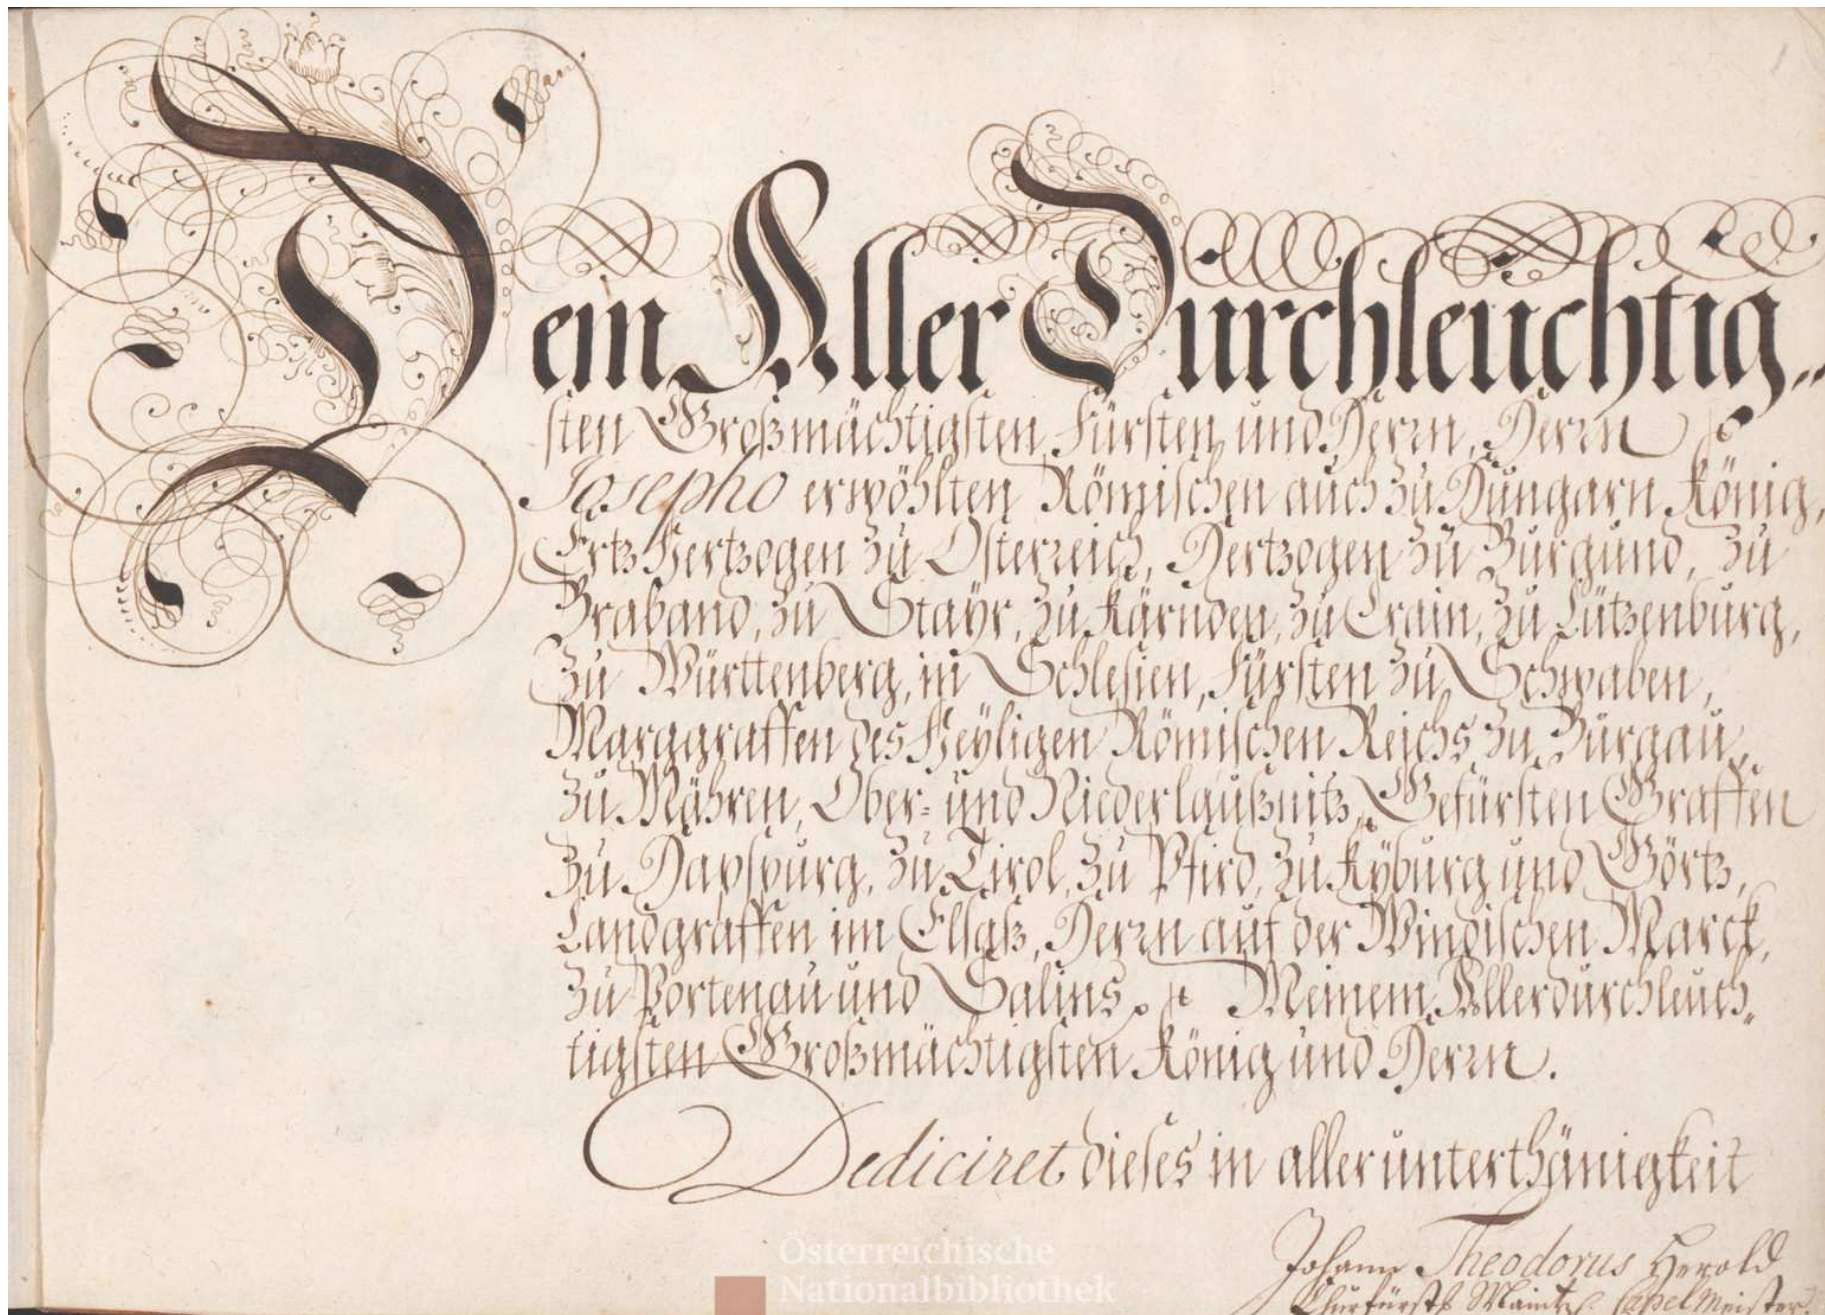 Dem Aller Durchleuchtig„
sten Großmächtigsten Fürsten und Herrn, Herrn
Josepho erwöhlten Römischen auch zu Hungarn König,
Ertz Hertzogen zu Osterreich, Hertzogen zu Burgund, zu
Braband, zu Stayr, zu Kärnden, zu Crain, zu Lützenburg,
zu Württenberg, in Schlesien, Fürsten zu Schwaben,
Marggraffen des Heyligen Römischen Reichs zu Burgau,
zu Mähren, Ober- und Niederlaußnitz, Gefürsten Graffen
zu Hapspurg, zu Tirol, zu Pfird, zu Kyburg und Görtz,
Landgraffen im Elsaß, Herrn auf der Windischen Marck,
zu Portenau und Salins. Meinem Allerdurchleuch„
tigsten Großmächtigsten König und Herrn.
Dediciret dieses in aller unterthänigkeit
Johann Theodorus Herold
Churfürstl. Maintz. Capel Meister.
Österreichische
Nationalbibliothek
1